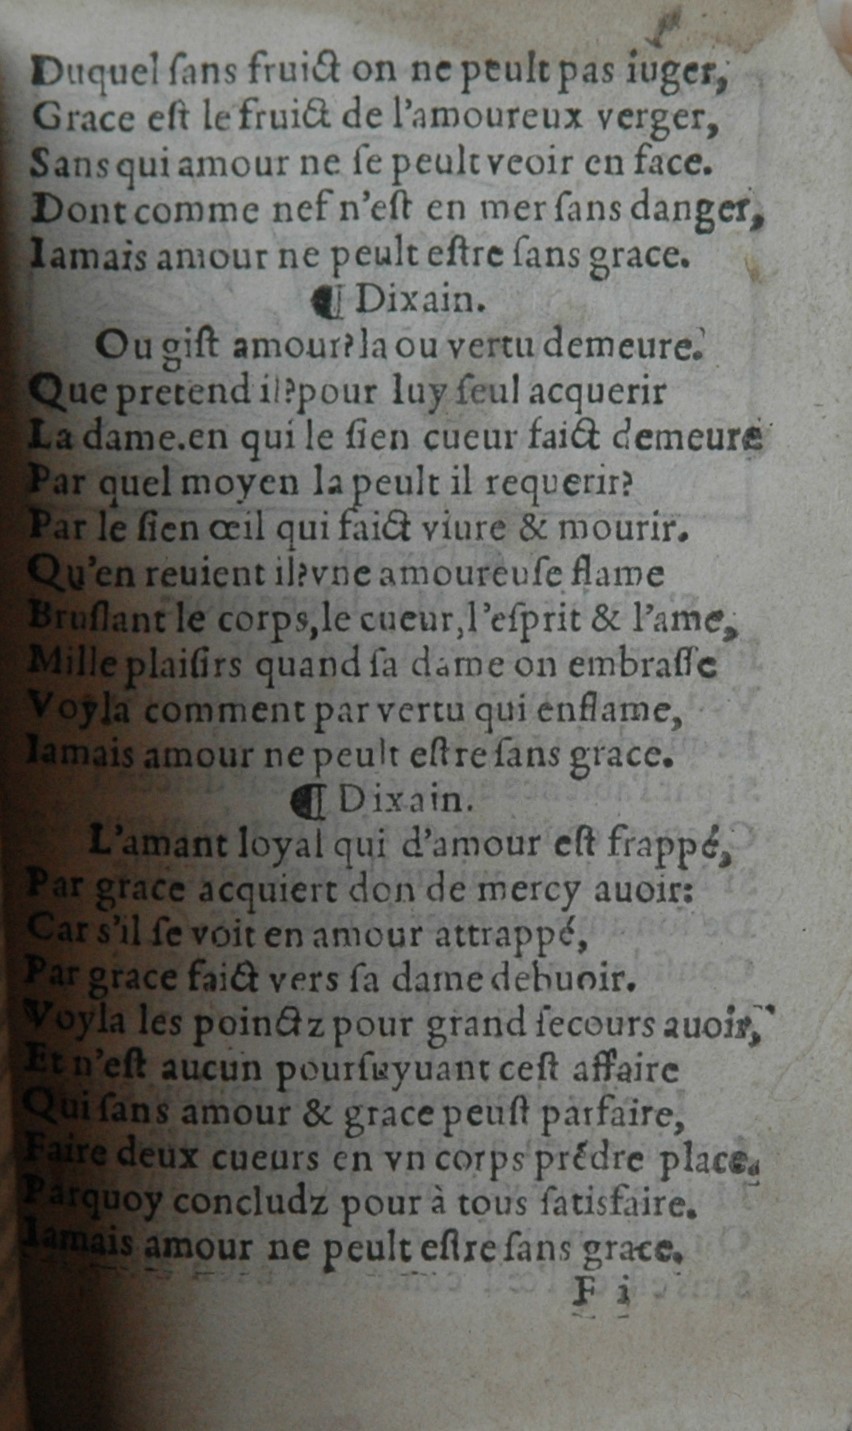 Duquel ſans fruict on ne peult pas iuger,
Grace eſt le fruict de l'amoureux verger,
Sans qui amour ne ſe peult veoir en face.
Dont comme nef n'eſt en mer ſans danger,
Iamais amour ne peult eſtre ſans grace.
¶ Dixain.
Ou giſt amour?la ou vertu demeure.
Que pretend il?pour luy ſeul acquerir
La dame.en qui le ſien cueur faict demeure
Par quel moyen la peult il requerir?
Par le ſien œil qui faict viure & mourir.
Qu'en reuient il?vne amoureuſe flame
Bruſlant le corps,le cueur,l'eſprit & l'ame,
Mille plaiſirs quand ſa dame on embraſſe
Voyla comment par vertu qui enflame,
Iamais amour ne peult eſtre ſans grace.
¶ Dixain.
L'amant loyal qui d'amour eſt frappé,
Par grace acquiert don de mercy auoir:
Car s'il ſe voit en amour attrappé,
Par grace faict vers ſa dame debuoir.
Voyla les poinctz pour grand ſecours auoir,
Et n'eſt aucun pourſuyuant ceſt affaire
Qui ſans amour & grace peuſt parfaire,
Faire deux cueurs en vn corps prẽdre place.
Parquoy concludz pour à tous ſatisfaire.
Iamais amour ne peult eſtre ſans grace.
F i